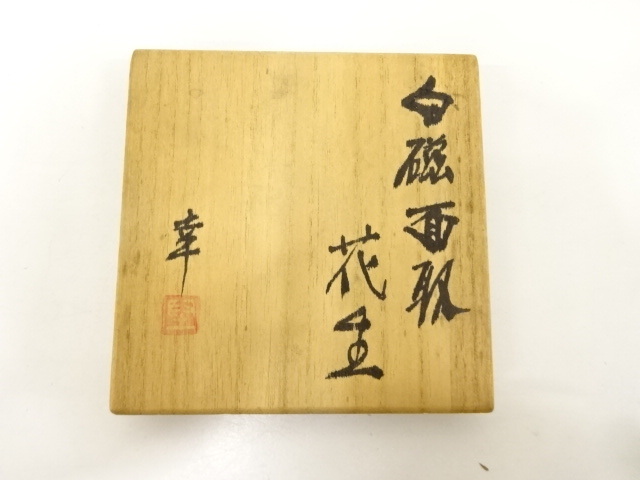 白磁面取
花生
幸